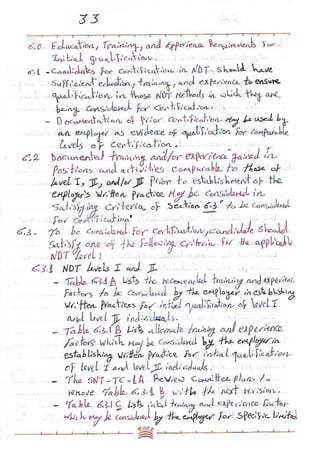 33
6.0 Education, Training, and Experience Requirements for
Initial Qualification.
6.1 - Candidates for certification in NDT should have
Sufficient education, training, and experience to ensure
qualification in those NDT Methods in which they are
being Considered for Certification.
- Documentation of Prior Certification May be used by
an employer as evidence of qualification for comparable
Levels of certification.
6.2 Documented training and/or experience gained in
Positions and activities comparable to those of
Level I, II, and/or III Prior to establishment of the
employer's Written Practice May be Considered in
Satisfying Criteria of Section 6.3" to be Considered
for Certification"
6.3 - To be Considered for Certification, candidate Should
Satisfy one of the following Criteria for the applicable
NDT level:
6.3.1 NDT Levels I and II
- Table 6.3.1 A Lists the recommended training and experience
Factors to be Considered by the employer in establishing
Written Practices for initial qualification of level I
and level II individuals.
- Table 6.3.1 B Lists alternate training and experience
factors which May be Considered by the employer in
establishing Written Practice for initial qualification
of level I and level II individuals.
- The SNT-TC-1A Review Committee plans to
remove Table 6.3.1 B with the next revision.
- Table 6.3.1 C Lists initial training and experience Factor
which May be considered by the employer for Specific limited